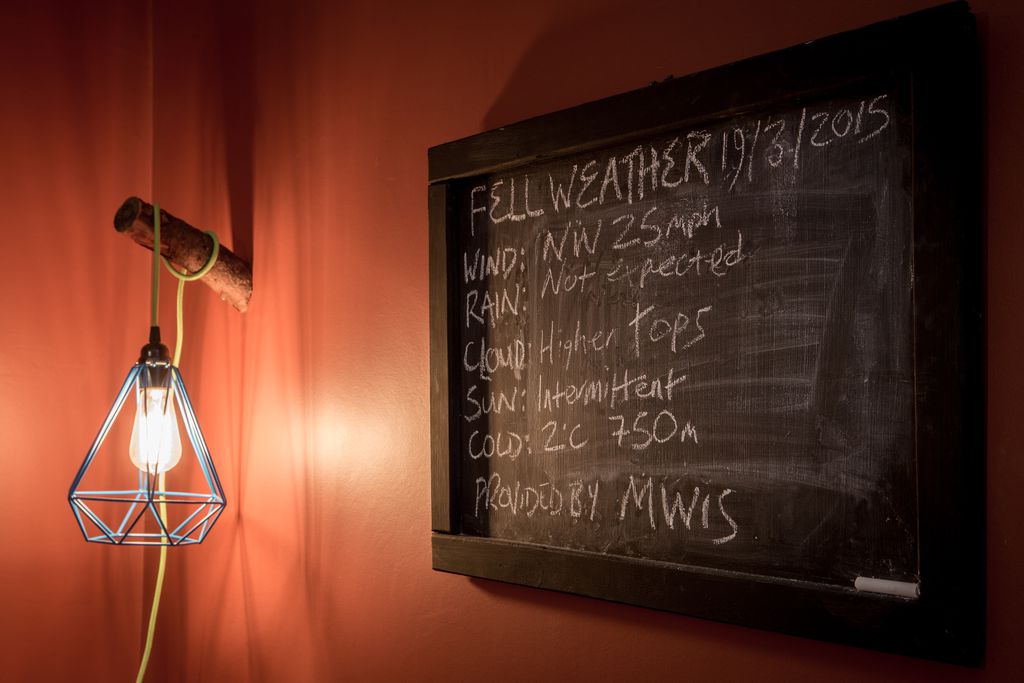 FELL WEATHER 19/3/2015
WIND: NW 25mph
RAIN: Not expected
CLOUD: Higher Tops
SUN: Intermittent
COLD: 2°C 750m
PROVIDED BY MWIS